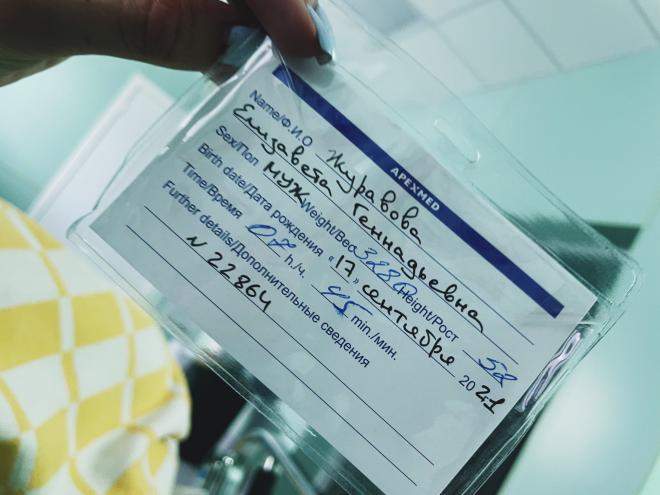 APEXMED
Name/Ф.И.О Журавова
Елизавета Геннадьевна
Sex/Пол муж Weight/Вес 3880 Height/Рост 58
Birth date/Дата рождения «17» сентября 2021
Time/Время 07 h./ч. 45 min./мин.
Further details/Дополнительные сведения
N 22864